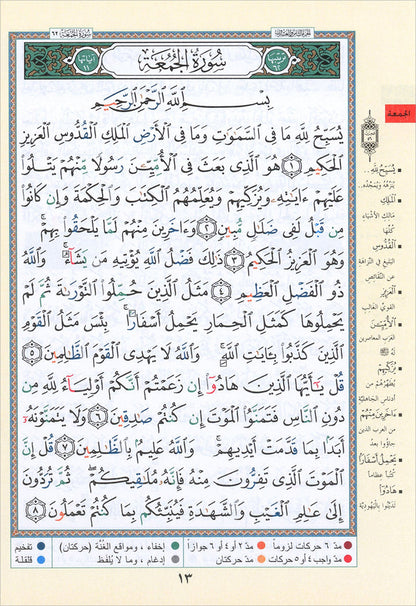 سُورَةُ الْجُمُعَةِ ٦٢
سُورَةُ الجُمُعَةِ
آيَاتُهَا ١١
بِسْمِ اللَّهِ الرَّحْمَٰنِ الرَّحِيمِ
يُسَبِّحُ لِلَّهِ مَا فِي السَّمَٰوَٰتِ وَمَا فِي الْأَرْضِ الْمَلِكِ الْقُدُّوسِ الْعَزِيزِ
الْحَكِيمِ ١ هُوَ الَّذِي بَعَثَ فِي الْأُمِّيِّـۧنَ رَسُولًا مِّنْهُمْ يَتْلُوا۟
عَلَيْهِمْ ءَايَٰتِهِۦ وَيُزَكِّيهِمْ وَيُعَلِّمُهُمُ الْكِتَٰبَ وَالْحِكْمَةَ وَإِن كَانُوا۟
مِن قَبْلُ لَفِي ضَلَٰلٍ مُّبِينٍ ٢ وَءَاخَرِينَ مِنْهُمْ لَمَّا يَلْحَقُوا۟ بِهِمْ ۚ
وَهُوَ الْعَزِيزُ الْحَكِيمُ ٣ ذَٰلِكَ فَضْلُ اللَّهِ يُؤْتِيهِ مَن يَشَآءُ ۚ وَاللَّهُ
ذُو الْفَضْلِ الْعَظِيمِ ٤ مَثَلُ الَّذِينَ حُمِّلُوا۟ التَّوْرَىٰةَ ثُمَّ لَمْ
يَحْمِلُوهَا كَمَثَلِ الْحِمَارِ يَحْمِلُ أَسْفَارًۢا ۚ بِئْسَ مَثَلُ الْقَوْمِ
الَّذِينَ كَذَّبُوا۟ بِـَٔايَٰتِ اللَّهِ ۚ وَاللَّهُ لَا يَهْدِي الْقَوْمَ الظَّٰلِمِينَ ٥
قُلْ يَٰٓأَيُّهَا الَّذِينَ هَادُوٓا۟ إِن زَعَمْتُمْ أَنَّكُمْ أَوْلِيَآءُ لِلَّهِ مِن
دُونِ النَّاسِ فَتَمَنَّوُا۟ الْمَوْتَ إِن كُنتُمْ صَٰدِقِينَ ٦ وَلَا يَتَمَنَّوْنَهُۥٓ
أَبَدًۢا بِمَا قَدَّمَتْ أَيْدِيهِمْ ۚ وَاللَّهُ عَلِيمٌۢ بِالظَّٰلِمِينَ ٧ قُلْ إِنَّ
الْمَوْتَ الَّذِي تَفِرُّونَ مِنْهُ فَإِنَّهُۥ مُلَٰقِيكُمْ ۖ ثُمَّ تُرَدُّونَ
إِلَىٰ عَٰلِمِ الْغَيْبِ وَالشَّهَٰدَةِ فَيُنَبِّئُكُم بِمَا كُنتُمْ تَعْمَلُونَ ٨
الجمعة
يُسَبِّحُ لِلَّهِ
يُنَزِّهُهُ ويُمَجِّدُه..
المَلِكِ
مَالِكِ الأشْيَاءِ
كُلِّهَا
القُدُّوسِ
البليغ في النزاهة
عن النقائص
العَزِيزِ
القوي الغالب
الأُمِّيِّينَ
العرب المعاصرين
له ﷺ
يُزَكِّيهِمْ
يُطَهِّرُهم من
أدناس الجاهلية
وَآخَرِينَ مِنْهُمْ
من العرب الذين
جاؤوا بعدُ
يَحْمِلُ أَسْفَارًا
كُتُبًا عِظامًا
هَادُوا
تَدَيَّنُوا باليَهُودِيَّة
مدّ ٦ حركات لزوماً
مدّ ٢ أو ٤ أو ٦ جوازاً
إخفاء، ومواقع الغُنَّة (حركتان)
تفخيم
مدّ واجب ٤ أو ٥ حركات
مدّ حركتان
إدغام، وما لا يُلفَظ
قلقلة
١٣